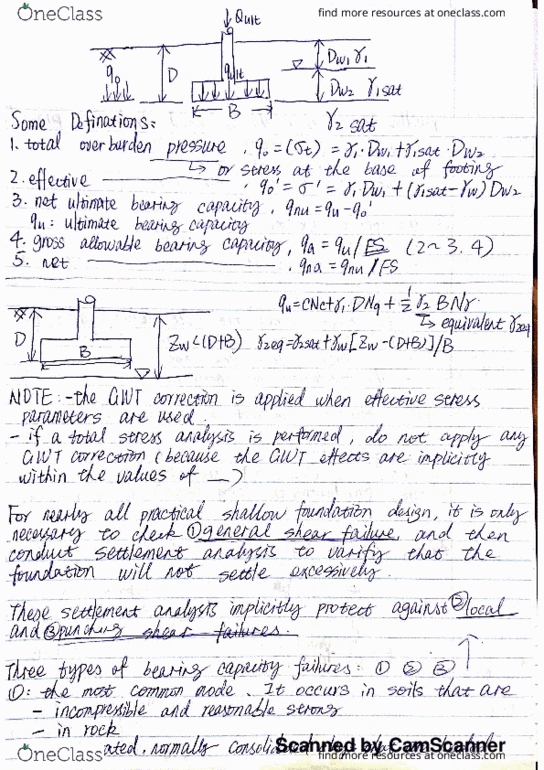 OneClass
find more resources at oneclass.com
Qult
q₀
D
qult
B
Dw1 γ1
Dw2 γ1sat
γ2 sat
Some Definations:
1. total overburden pressure, q₀ = (σt) = γ1·Dw1 + γ1sat·Dw2
↳ or stress at the base of footing
2. effective ———, q₀' = σ' = γ1Dw1 + (γ1sat-γw)Dw2
3. net ultimate bearing capacity, qnu = qu - q₀'
qu: ultimate bearing capacity
4. gross allowable bearing capacity, qa = qu/FS (2~3, 4)
5. net ———, qna = qnu/FS
qu = CNc + γ1 DNq + ½ γ2 BNγ
↳ equivalent γ2eq
D
B
Zw<(D+B) γ2eq = γ2sat + γw[Zw - (D+B)]/B
NOTE: - the GWT correction is applied when effective stress
parameters are used.
- if a total stress analysis is performed, do not apply any
GWT correction (because the GWT effects are implicitly
within the values of __)
For nearly all practical shallow foundation design, it is only
necessary to check ① general shear failure, and then
conduct settlement analysis to varify that the
foundation will not settle excessively.
These settlement analysis implicitly protect against ② local
and ③ punching shear failures.
Three types of bearing capacity failures: ① ② ③
①: the most common mode. It occurs in soils that are
- incompressible and reasonable strong
- in rock
ated, normally consoli
Scanned by CamScanner
OneClass
find more resources at oneclass.com